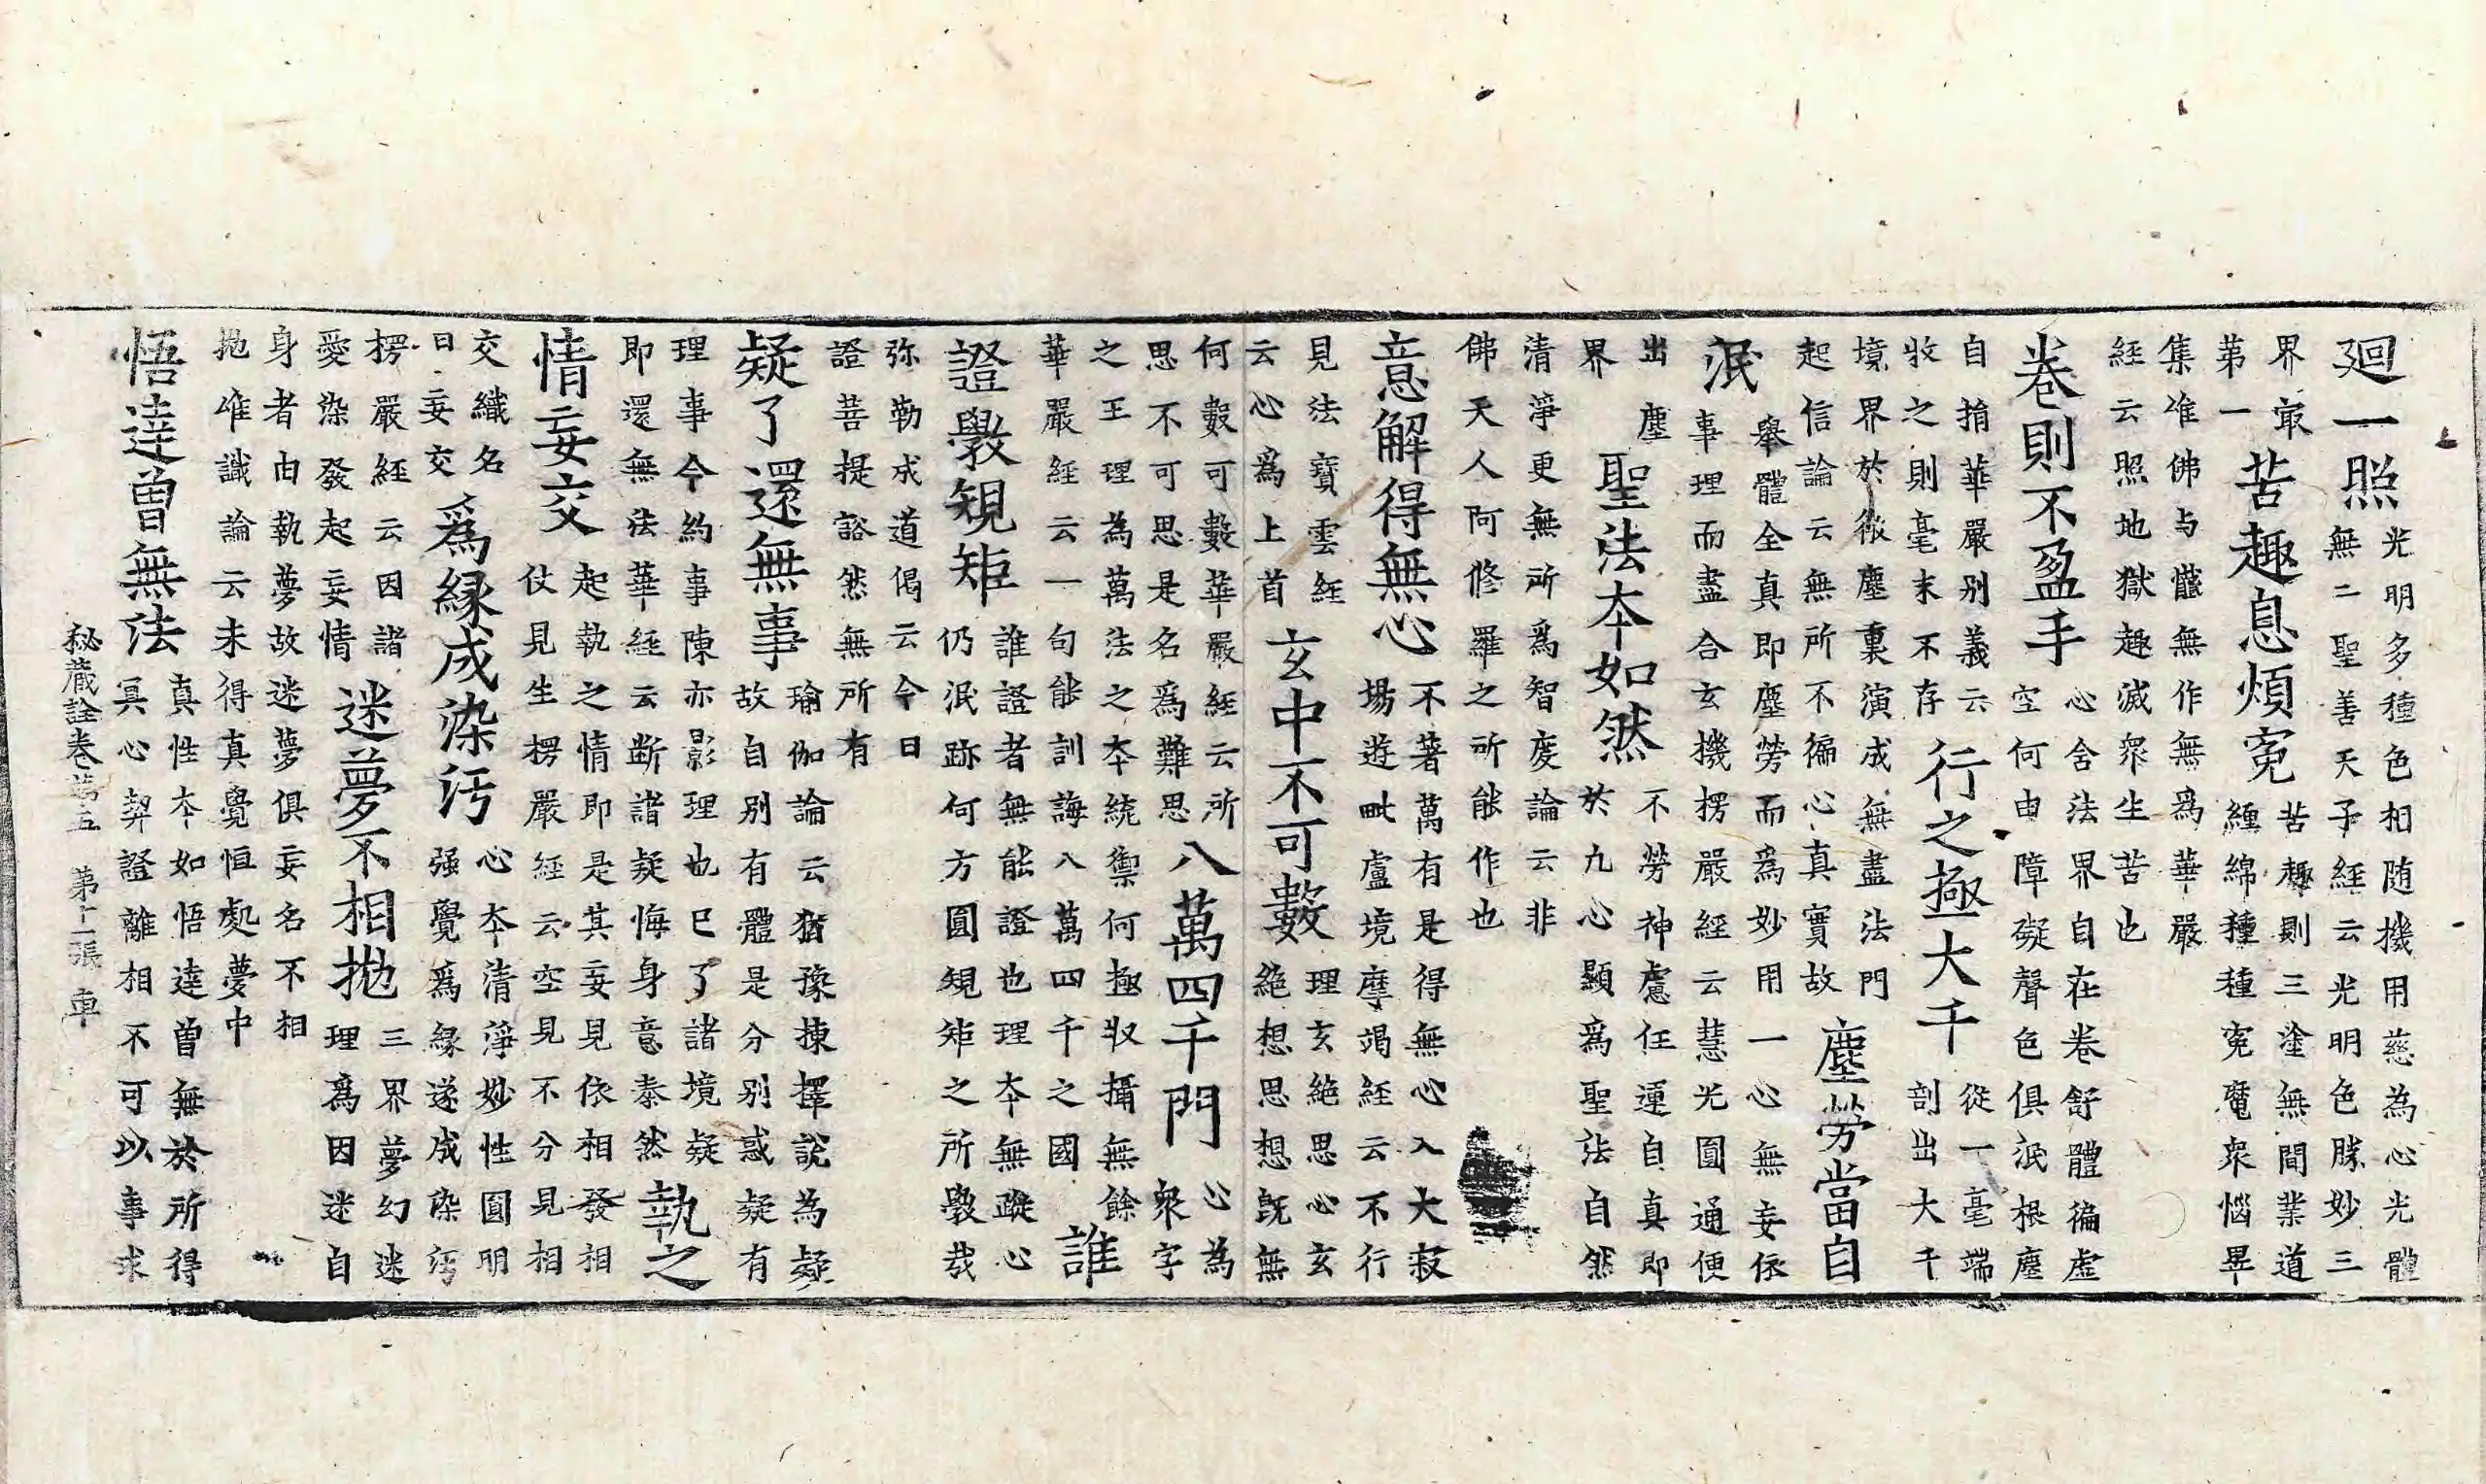 廻一照
光明多種色相随機用慈為心光體
無二聖善天子経云光明色勝妙三
界㝡
第一
苦趣息煩寃
苦趣則三塗無間業道
纏綿種種寃魔衆惱畢
集唯佛与軆無作無爲華嚴
經云照地獄趣滅衆生苦也
卷則不盈手
心舍法界自在卷舒體徧虚
空何由障礙聲色俱泯根塵
自捐華嚴别義云
收之則毫末不存
行之極大千
從一毫端
剖出大千
境界於微塵裏演成無盡法門
起信論云無所不徧心真實故
塵勞當自
泯
舉體全真即塵勞而爲妙用一心無妄依
事理而盡合玄機楞嚴經云慧光圓通便
出塵
界
聖法本如然
不勞神慮任運自真即
於九心顯爲聖法自然
清淨更無所爲智度論云非
佛天人阿修羅之所能作也
意解得無心
不著萬有是得無心入大寂
場遊毗盧境摩竭經云不行
見法寳雲経
云心爲上首
玄中不可數
理玄絶思心玄
絶想思想既無
何數可數華嚴經云所
思不可思是名爲難思
八萬四千門
心為
衆字
之王理為萬法之本統禦何極収攝無餘
華嚴經云一句能訓誨八萬四千之國
誰
證斅規矩
誰證者無能證也理本無蹤心
仍泯跡何方圓規矩之所斅哉
弥勒成道偈云今日
證菩提豁然無所有
疑了還無事
瑜伽論云猶豫揀擇説為疑
故自别有體是分别惑疑有
理事今約事陳亦影理也巳了諸境疑
即還無法華経云断諸疑悔身意泰然
執之
情妄交
起執之情即是其妄見依相發相
仗見生楞嚴經云空見不分見相
交織名
曰妄交
爲緣成染汚
心本清淨妙性圓明
强覺爲緣遂成染汚
楞嚴經云因諸
愛染發起妄情
迷夢不相抛
三界夢幻迷
理爲因迷自
身者由執夢故迷夢俱妄名不相
抛唯識論云未得真覺恒處夢中
悟達曾無法
真性本如悟達曾無於所得
冥心契證離相不可以事求
秘藏詮卷第五　第十一張　車